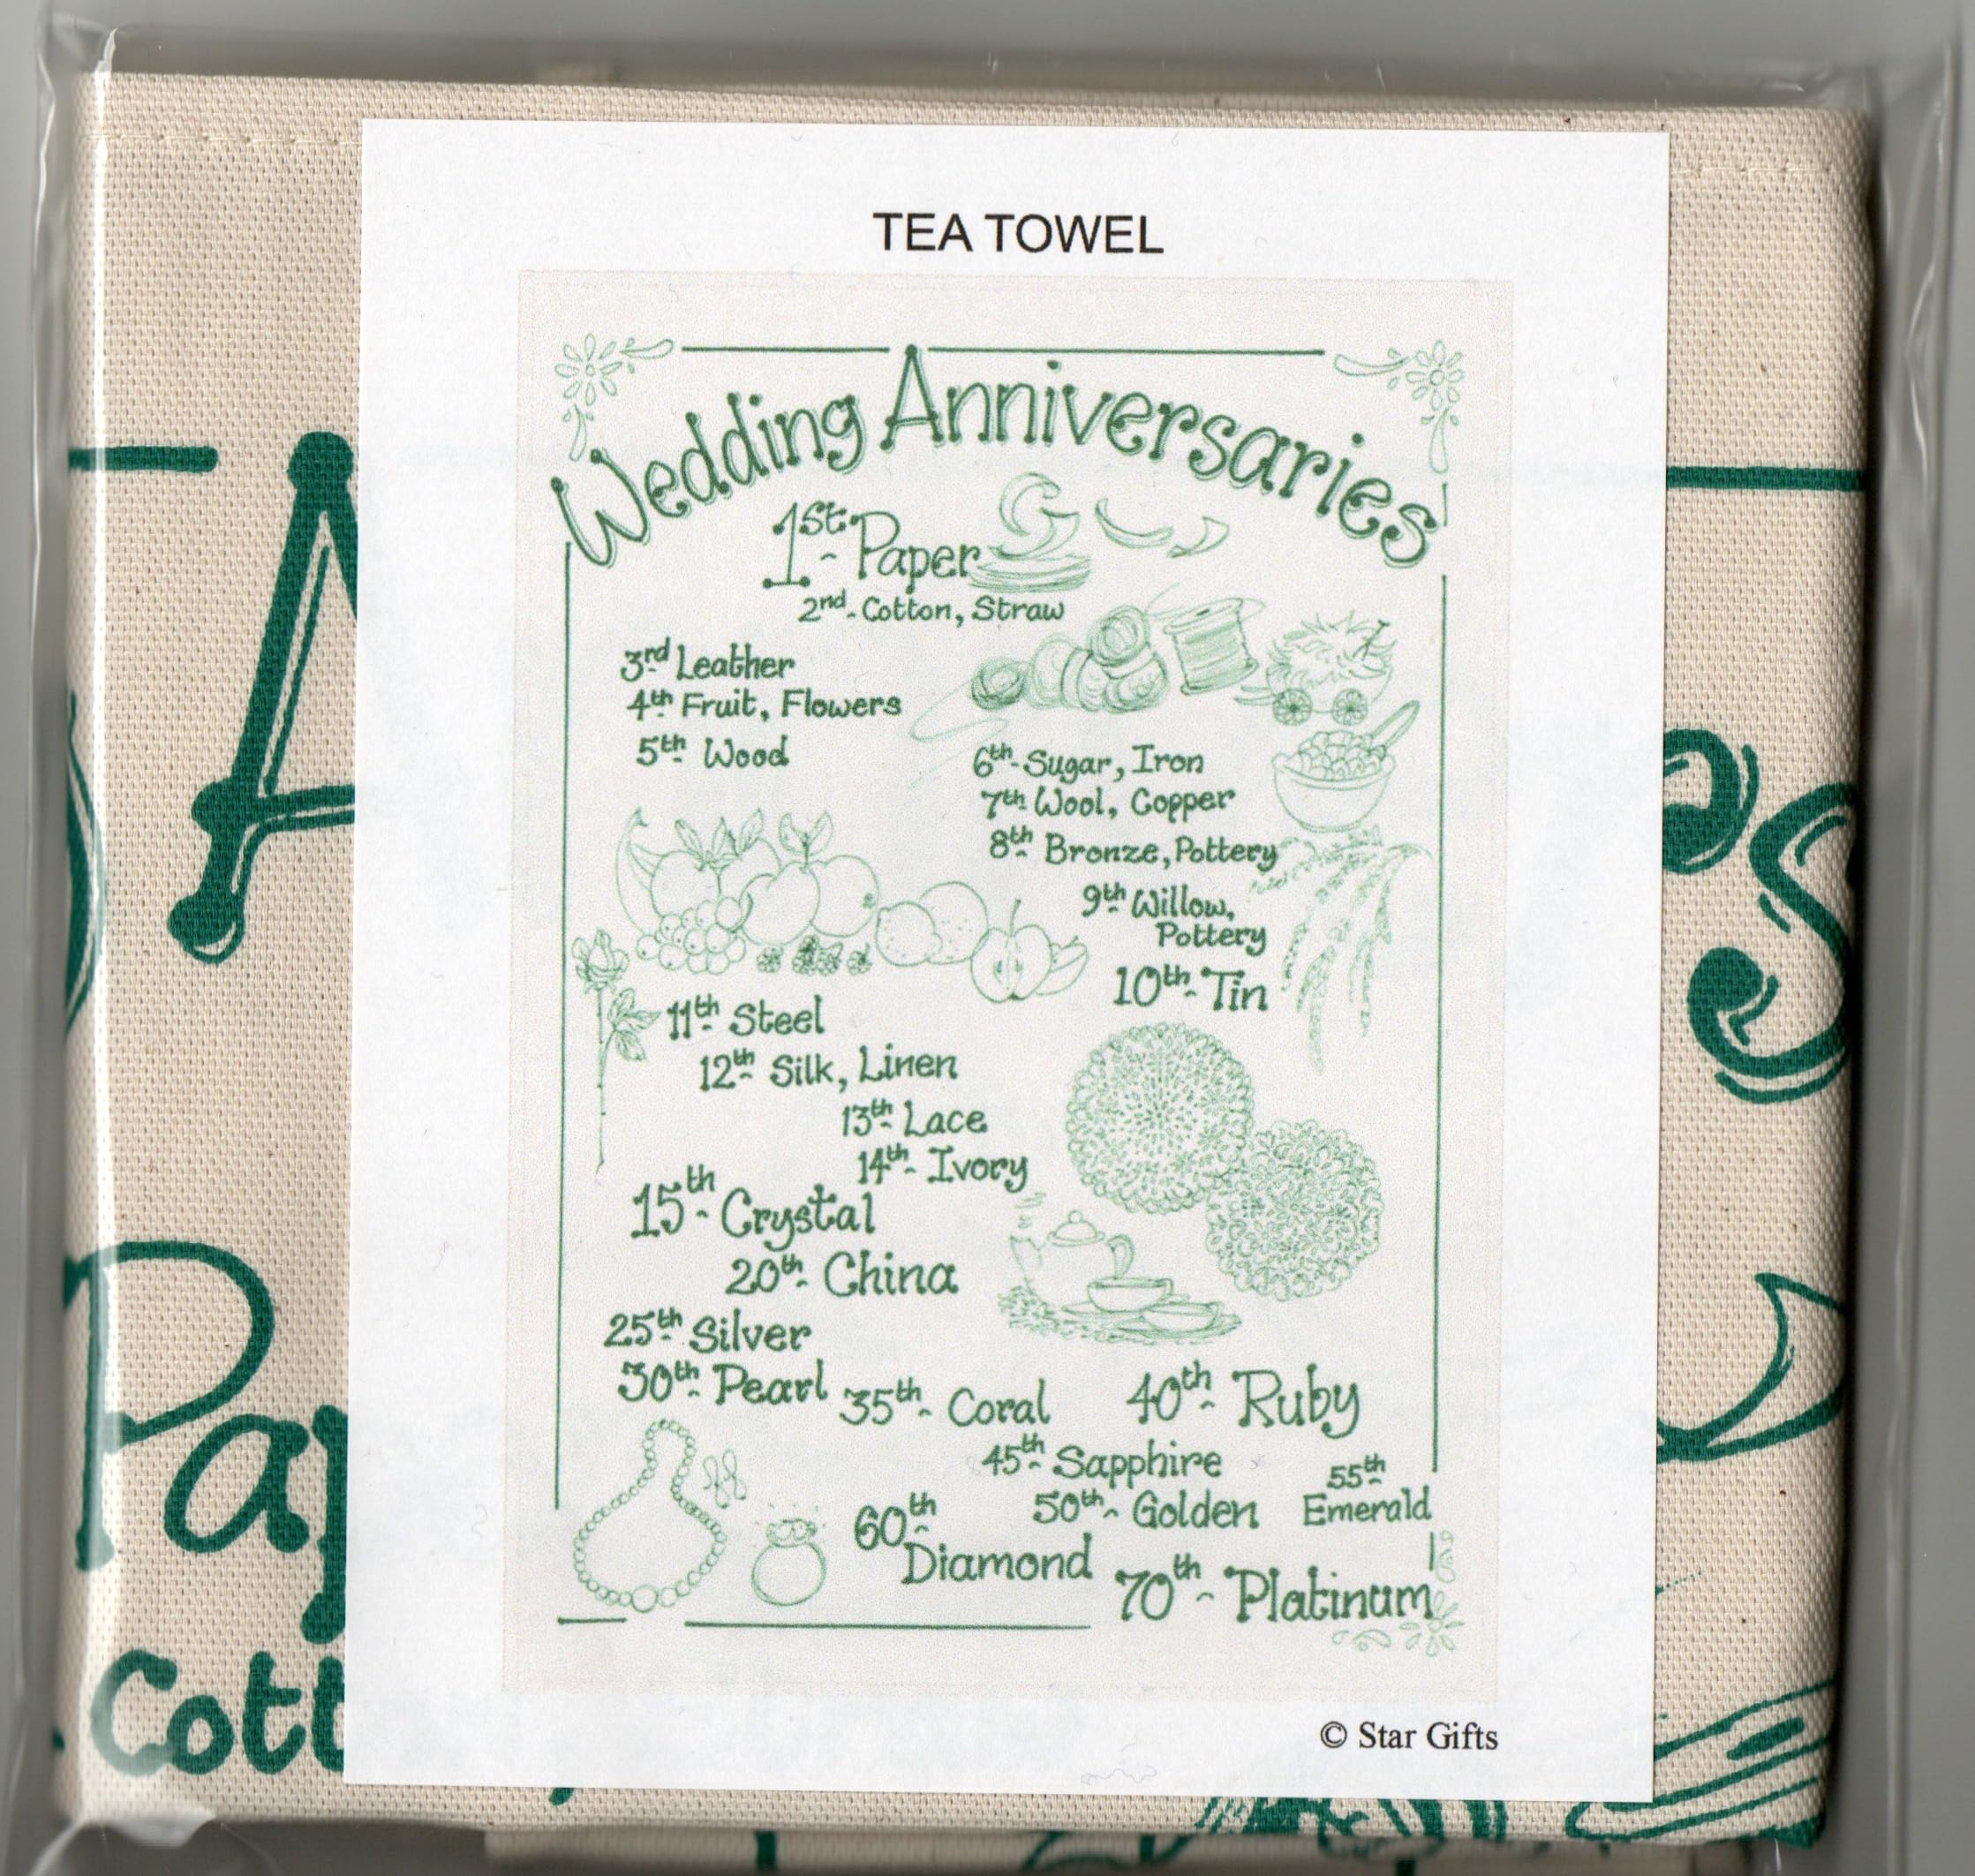 TEA TOWEL
Wedding Anniversaries
1st - Paper
2nd - Cotton, Straw
3rd Leather
4th Fruit, Flowers
5th Wood
6th - Sugar, Iron
7th Wool, Copper
8th Bronze, Pottery
9th Willow,
Pottery
10th - Tin
11th Steel
12th Silk, Linen
13th Lace
14th - Ivory
15th - Crystal
20th - China
25th Silver
30th - Pearl
35th - Coral
40th - Ruby
45th - Sapphire
50th - Golden
55th
Emerald
60th
Diamond
70th - Platinum
© Star Gifts
A
s
Pap
Cott